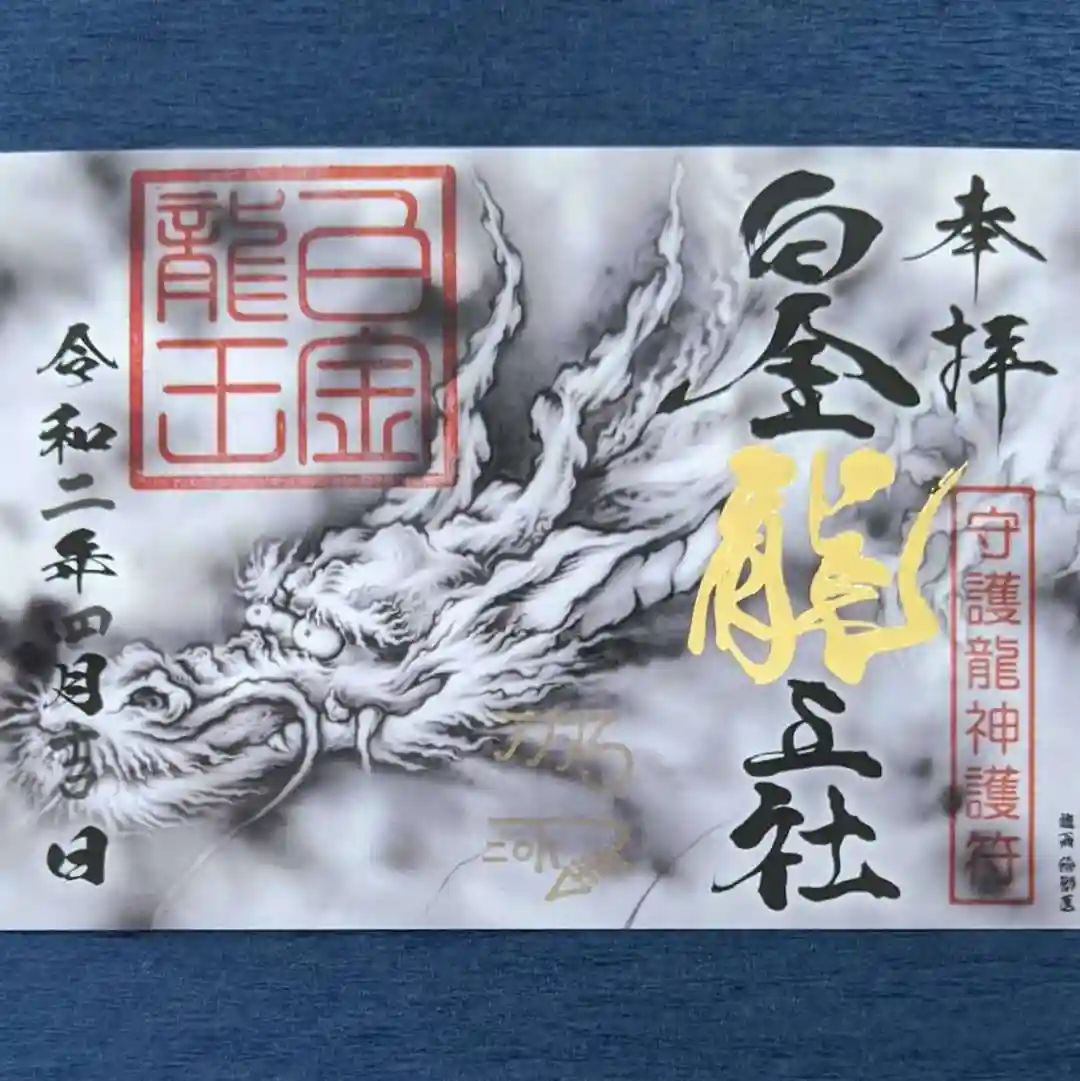 奉拝
守護龍神護符
白金龍王社
白金
龍王
令和二年四月 日